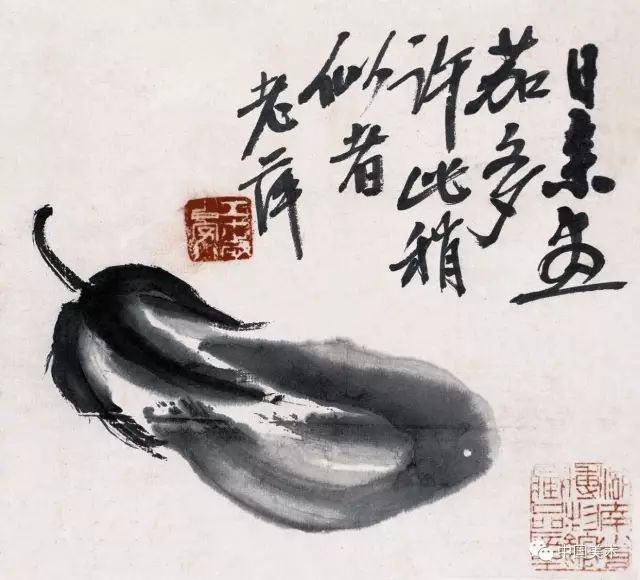 日来画
茄多
许此稍
似者
老萍
中国美术